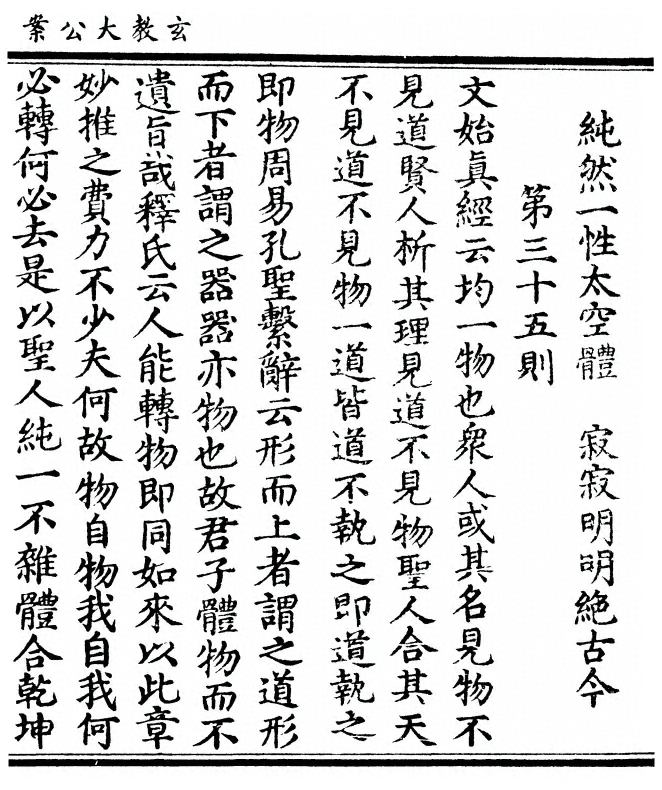 玄教大公案
純然一性太空體　寂寂明明絶古今
第三十五則
文始眞經云均一物也衆人或其名見物不
見道賢人析其理見道不見物聖人合其天
不見道不見物一道皆道不執之即道執之
即物周易孔聖繫辭云形而上者謂之道形
而下者謂之器器亦物也故君子體物而不
遺旨哉釋氏云人能轉物即同如來以此章
妙推之費力不少夫何故物自物我自我何
必轉何必去是以聖人純一不雜體合乾坤